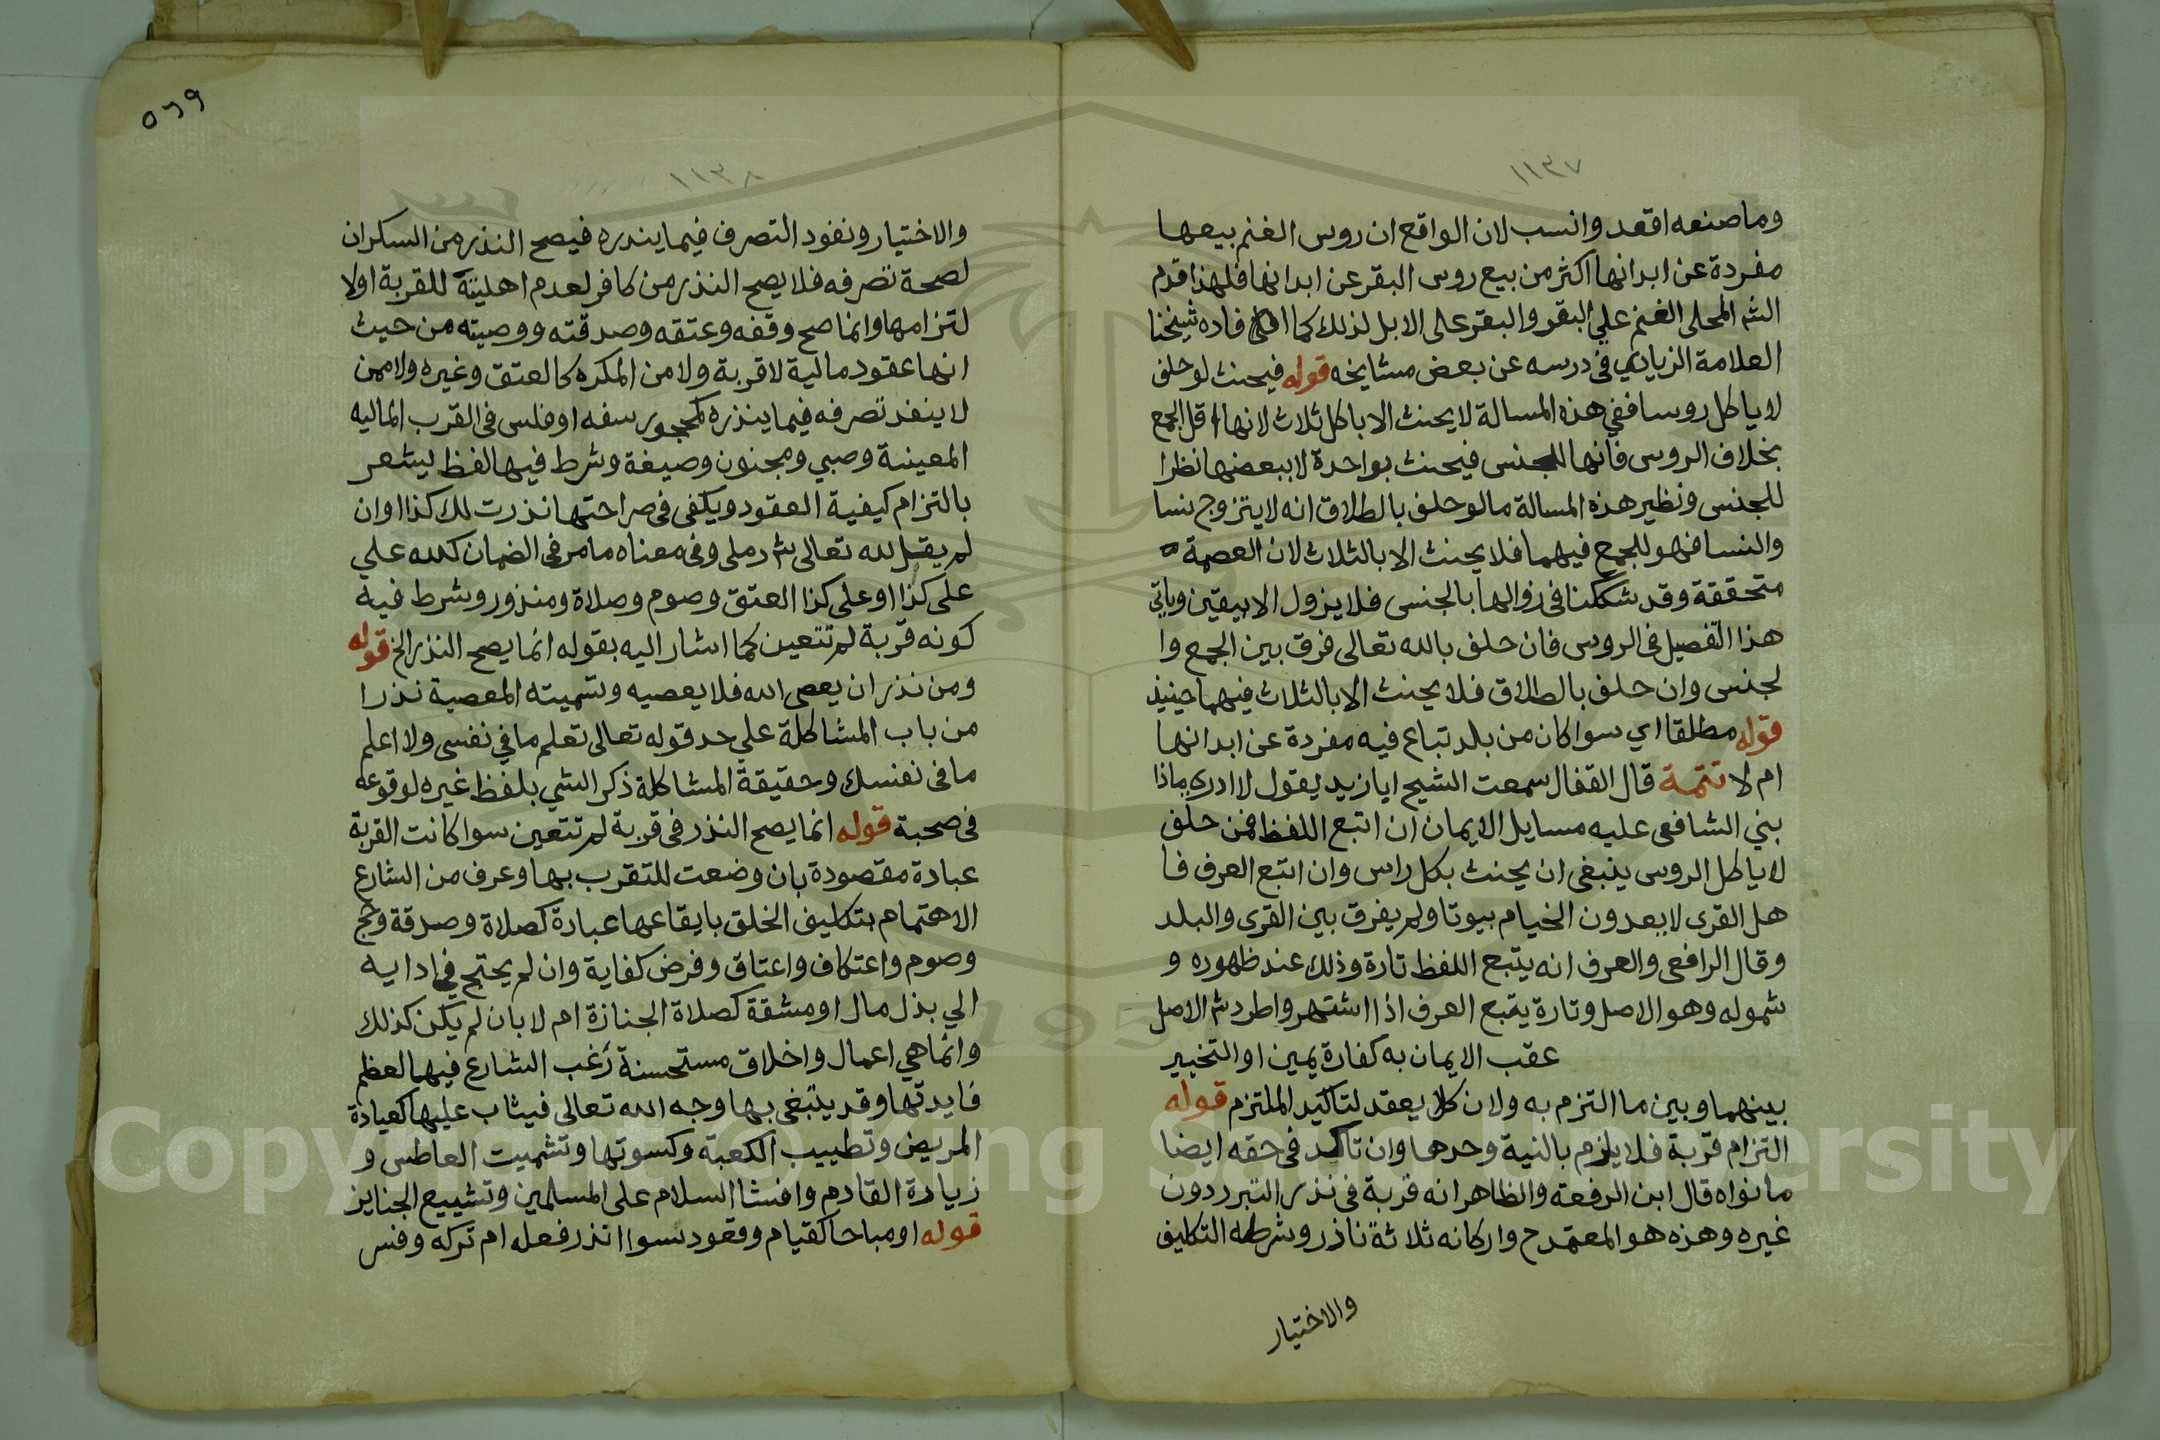 ١١٣٧
وما صنعه اقعد وانسب لان الواقع ان روس الغنم بيعها
مفردة عن ابدانها اكثر من بيع روس البقر عن ابدانها فلهذا قدم
الشم المحلى الغنم علي البقر والبقر على الابل لذلك كما افاده شيخنا
العلامة الزيادي في درسه عن بعض مشايخه قوله فيحنث لو حلف
لا ياكل روسا ففي هذه المسالة لا يحنث الا باكل ثلاث لانها اقل الجمع
بخلاف الروس فانها للجنس فيحنث بواحدة لا ببعضها نظرا
للجنس ونظير هذه المسالة ما لو حلف بالطلاق انه لا يتزوج نسا
والنسا فهو للجمع فيهما فلا يحنث الا بالثلاث لان العصمة
متحققة وقد شككنا في زوالها بالجنس فلا يزول الا بيقين وياتي
هذا التفصيل في الروس فان حلف بالله تعالى فرق بين الجمع وا
لجنس وان حلف بالطلاق فلا يحنث الا بالثلاث فيهما حينيذ
قوله مطلقا اي سوا كان من بلد تباع فيه مفردة عن ابدانها
ام لا تتمة قال القفال سمعت الشيح ابا زيد يقول لا ادري بماذا
بني الشافعى عليه مسايل الايمان ان اتبع اللفظ فمن حلف
لا ياكل الروس ينبغى ان يحنث بكل راس وان اتبع العرف فا
هل القرى لا يعدون الخيام بيوتا ولم يفرق بين القرى والبلد
وقال الرافعى والعرف انه يتبع اللفظ تارة وذلك عند ظهوره و
شموله وهو الاصل وتارة يتبع العرف اذا اشتهر واطرد شم الاصل
عقب الايمان به كفارة يمين او التخيير
بينهما وبين ما التزم به ولان كلا يعقد لتاكيد الملتزم قوله
التزام قربة فلا يلزم بالنية وحدها وان تاكد في حقه ايضا
ما نواه قال ابن الرفعة والظاهر انه قربة في نذر التبرر دون
غيره وهذه هو المعتمد ح واركانه ثلاثة ناذر وشرطه التكليف
والاختيار
٥٦٩
١١٣٨
والاختيار ونفود التصرف فيما ينذره فيصح النذر من السكران
لصحة تصرفه فلا يصح النذر من كافر لعدم اهليته للقربة اولا
لتزامها وانما صح وقفه وعتقه وصدقته ووصيته من حيث
انها عقود مالية لا قربة ولا من المكره كالعتق وغيره ولا ممن
لا ينفذ تصرفه فيما ينذره كمحجور سفه او فلس في القرب الماليه
المعينة وصبي ومجنون وصيغة وشرط فيها لفظ يشعر
بالتزام كيفية العقود ويكفى في صراحتها نذرت لك كذا وان
لم يقل لله تعالى شم رملي وفى معناه ما مر في الضمان كلله علي
على كذا او على كذا العتق وصوم وصلاة ومنذور وشرط فيه
كونه قربة لم تتعين كما اشار اليه بقوله انما يصح النذر الخ قوله
ومن نذر ان يعصى الله فلا يعصيه وتسميته المعصية نذرا
من باب المشاكلة علي حد قوله تعالى تعلم ما في نفسى ولا اعلم
ما فى نفسك وحقيقة المشاكلة ذكر الشي بلفظ غيره لوقوعه
في صحبة قوله انما يصح النذر في قربة لم تتعين سوا كانت القربة
عبادة مقصودة بان وضعت للتقرب بها وعرف من الشارع
الاهتمام بتكليف الخلق بايقاعها عبادة كصلاة وصدقة وحج
وصوم واعتكاف واعتاق وفرض كفاية وان لم يحتج في ادايه
الي بذل مال او مشقة كصلاة الجنازة ام لا بان لم يكن كذلك
وانما هي اعمال واخلاق مستحسنة رغب الشارع فيها لعظم
فايدتها وقد يبتغى بها وجه الله تعالى فيثاب عليها كعيادة
المريض وتطييب الكعبة وكسوتها وتشميت العاطس و
زيارة القادم وافشا السلام على المسلمين وتشييع الجنايز
قوله او مباحا كقيام وقعود سوا انذر فعله ام تركه وفس
Copyright © King Saud University
195